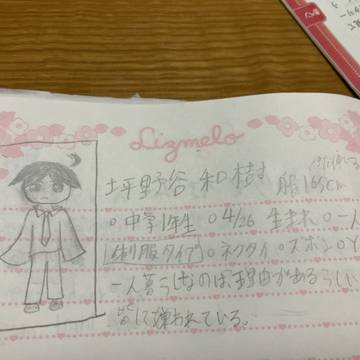 Lizmelo
坪野谷 和樹 165cm
○中学1年生 ○4/26 生まれ ○一
制服タイプ ○ネクタイ ○ズボン ○
一人暮らしなのは理由があるらしい
皆に嫌われている。